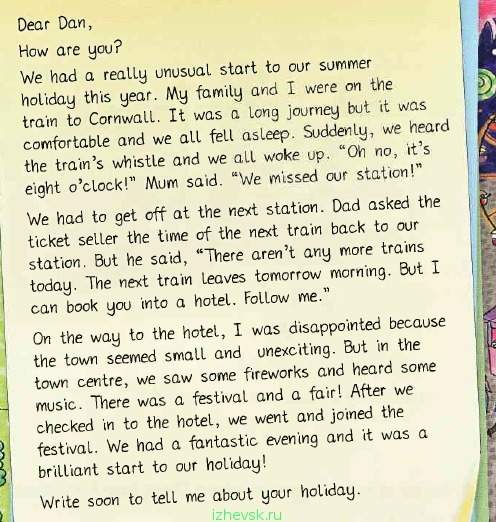 Dear Dan,
How are you?
We had a really unusual start to our summer
holiday this year. My family and I were on the
train to Cornwall. It was a long journey but it was
comfortable and we all fell asleep. Suddenly, we heard
the train's whistle and we all woke up. "Oh no, it's
eight o'clock!" Mum said. "We missed our station!"
We had to get off at the next station. Dad asked the
ticket seller the time of the next train back to our
station. But he said, "There aren't any more trains
today. The next train leaves tomorrow morning. But I
can book you into a hotel. Follow me."
On the way to the hotel, I was disappointed because
the town seemed small and unexciting. But in the
town centre, we saw some fireworks and heard some
music. There was a festival and a fair! After we
checked in to the hotel, we went and joined the
festival. We had a fantastic evening and it was a
brilliant start to our holiday!
Write soon to tell me about your holiday.
izhevsk.ru